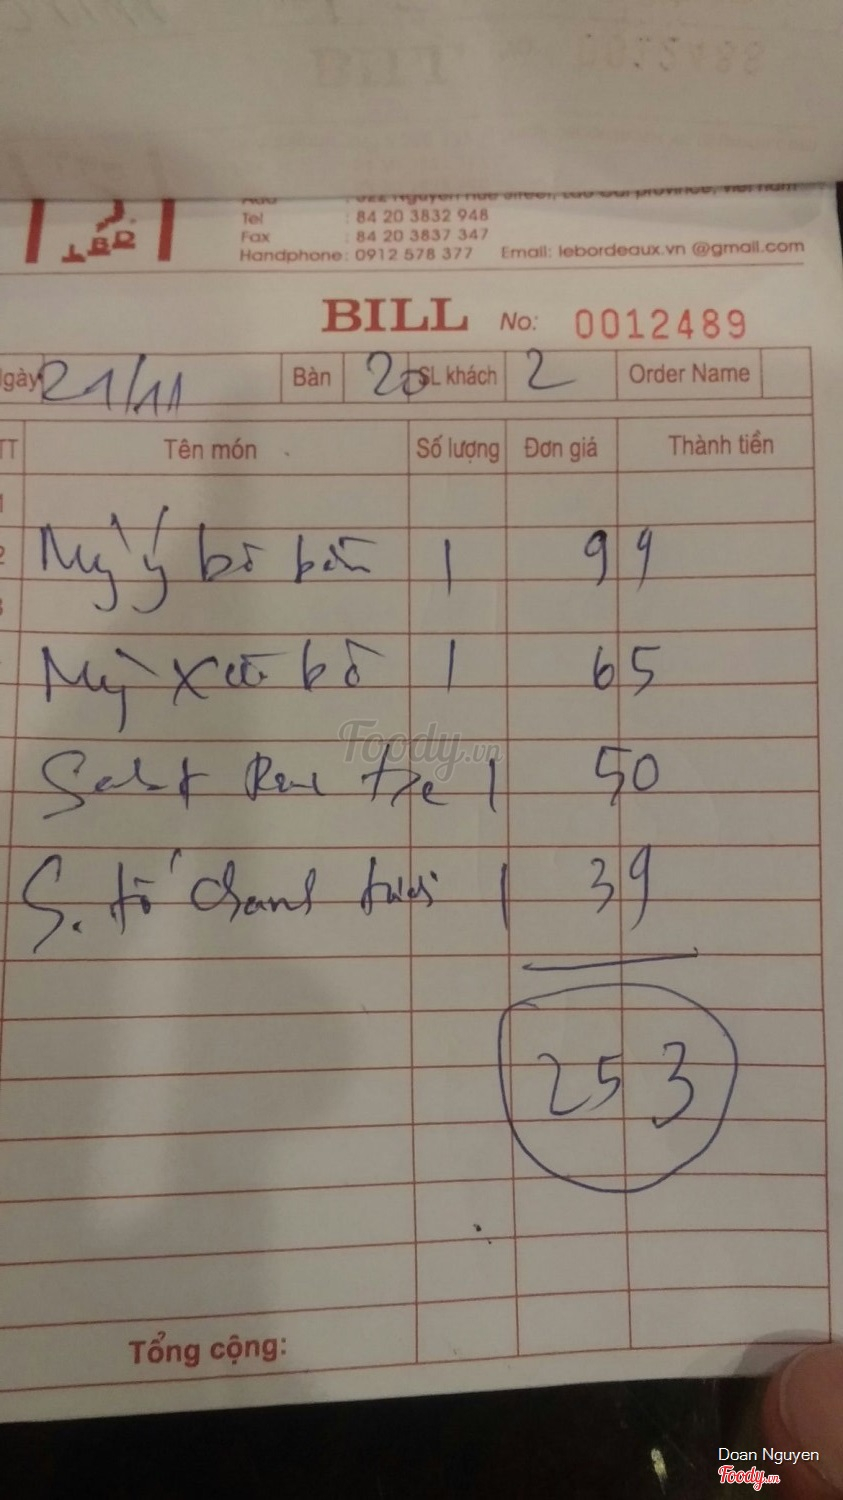 BILL
: 322 Nguyen Hue street, Lao Cai province, Viet nam
Tel : 84 20 3832 948
Fax : 84 20 3837 347
Handphone : 0912 578 377 Email: lebordeaux.vn @gmail.com
LBR
BILL No: 0012489
Ngày 21/11 Bàn 20 SL khách 2 Order Name
TT Tên món Số lượng Đơn giá Thành tiền
1
2 Mỳ ý bò bằm 1 99
3
Mỳ xào bò 1 65
Salat 1 50
S. tố chanh tươi 1 39
253
Tổng cộng:
Foody.vn
Doan Nguyen
Foody.vn